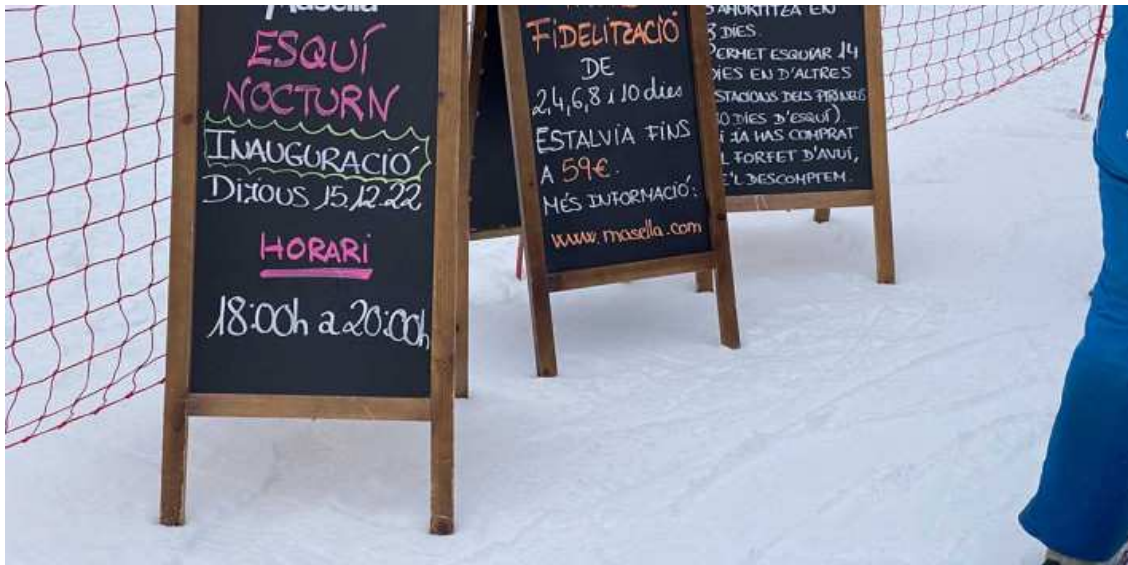 Masella
ESQUÍ
NOCTURN
INAUGURACIÓ
DIJOUS 15.12.22
HORARI
18:00h a 20:00h
FIDELITZACIÓ
DE
2,4,6,8 i 10 dies
ESTALVIA FINS
A 59€.
MÉS INFORMACIÓ:
www.masella.com
S'AMORTITZA EN
3 DIES.
PERMET ESQUIAR 14
DIES EN D'ALTRES
ESTACIONS DELS PIRINEUS
DIES D'ESQUÍ).
JA HAS COMPRAT
FORFET D'AVUI,
DESCOMPTEM.